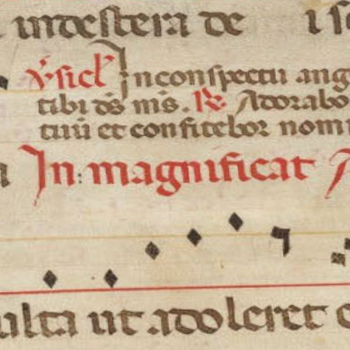 indextera de i s
v̾sicl̾ Inconspectu ang
tibi ds̄ ms̄. R̸ Adorabo
tuū et confitebor nomi
In magnificat A
ulta ut adoleret